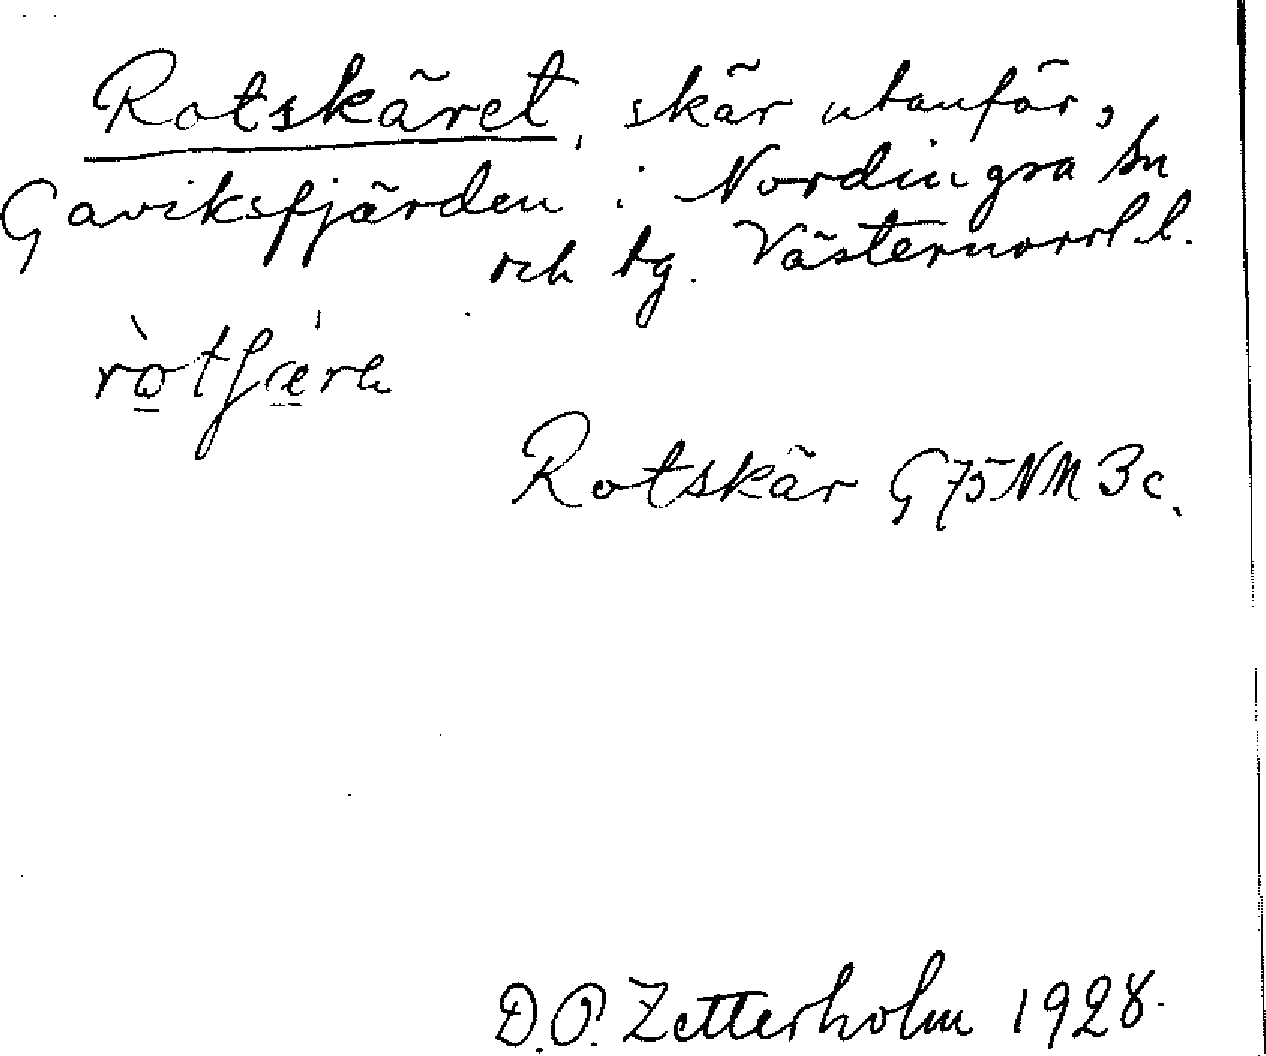 Rotskäret, skär utanför,
Gaviksfjärden i Nordingrå sn
och tg. Västernorrl. l.
Rotskär G 75 NM 3 c.
D.O. Zetterholm 1928.